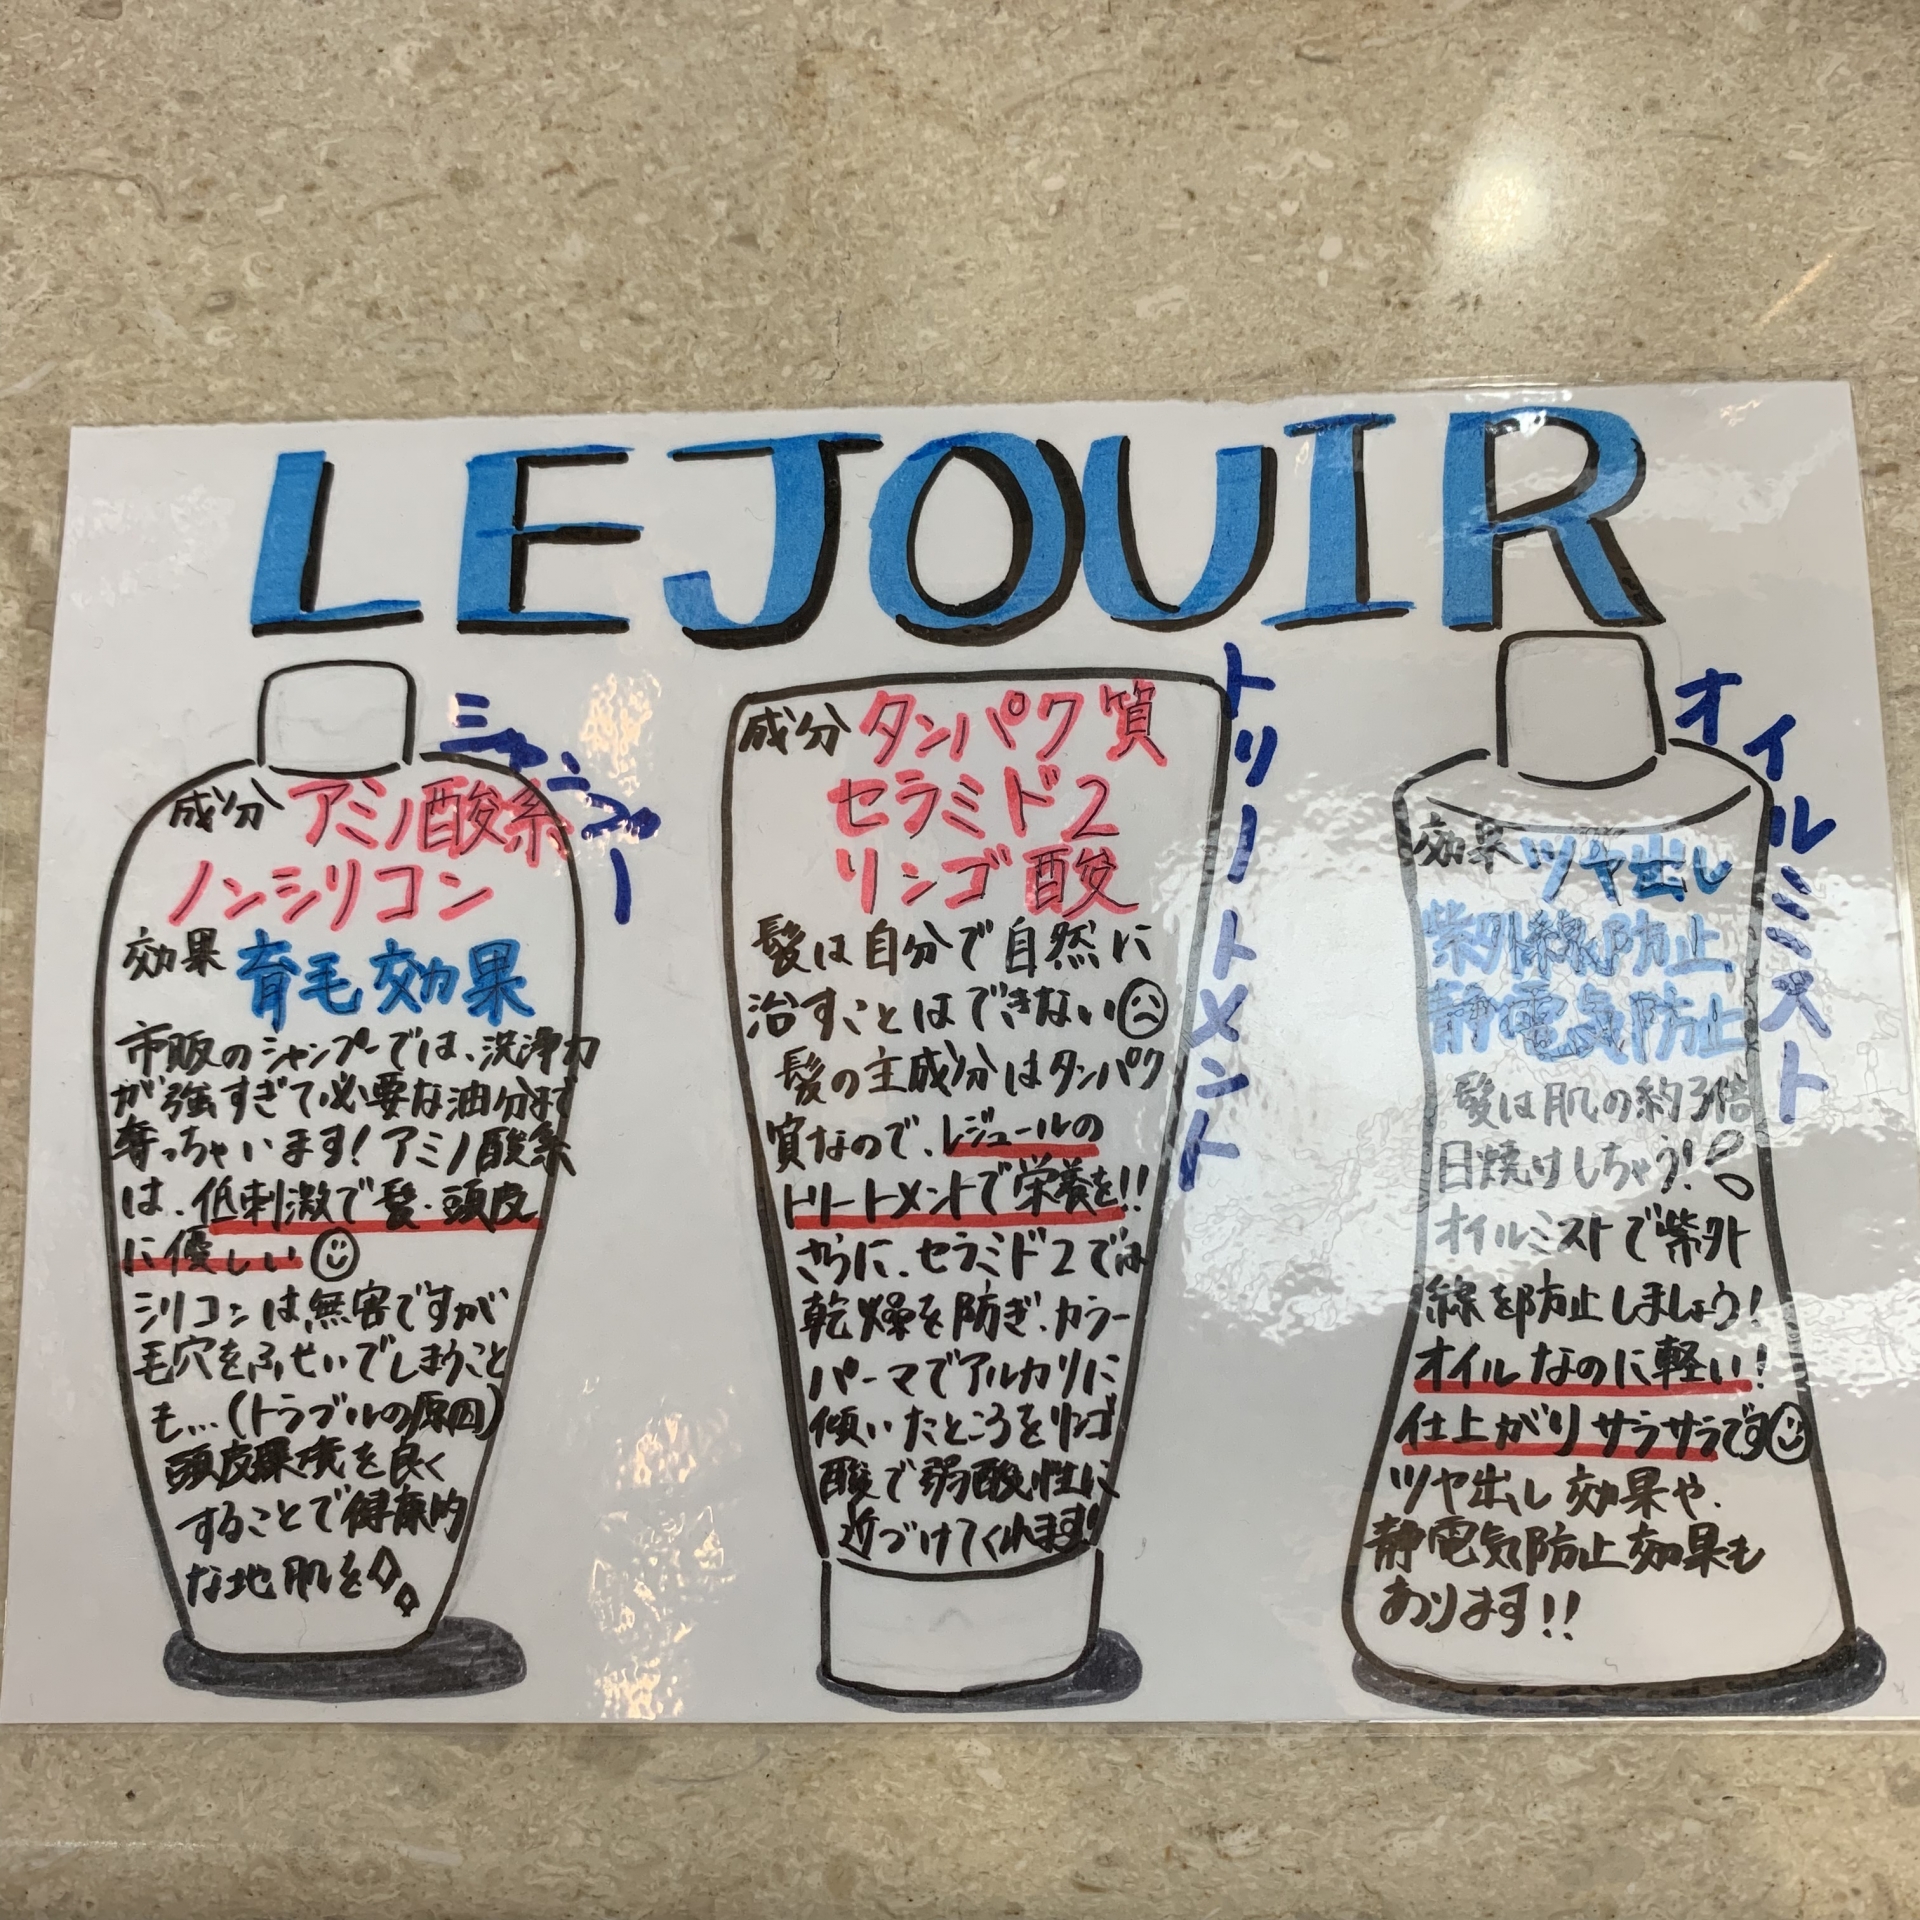 LEJOUIR
シャンプー
成分 アミノ酸系
ノンシリコン
効果 育毛効果
市販のシャンプーでは、洗浄力
が強すぎて必要な油分まで
奪っちゃいます!アミノ酸系
は、低刺激で髪・頭皮
に優しい
シリコンは、無害ですが
毛穴をふせいでしまうこと
も…(トラブルの原因)
頭皮環境を良く
することで健康的
な地肌を
トリートメント
成分 タンパク質
セラミド2
リンゴ酸
髪は自分で自然に
治すことはできない
髪の主成分はタンパク
質なので、レジュールの
トリートメントで栄養を!!
さらに、セラミド2では
乾燥を防ぎ、カラー
パーマでアルカリに
傾いたところをリンゴ
酸で弱酸性に
近づけてくれます!
オイルミスト
効果 ツヤ出し
紫外線防止
静電気防止
髪は肌の約3倍
日焼けしちゃう!
オイルミストで紫外
線を防止しましょう!
オイルなのに軽い!
仕上がりサラサラです
ツヤ出し効果や、
静電気防止効果も
あります!!